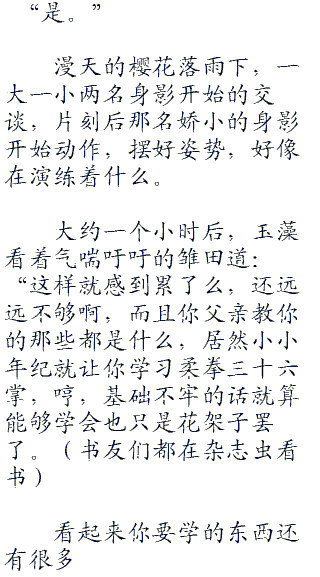 “是。”
漫天的樱花落雨下，一
大一小两名身影开始的交
谈，片刻后那名娇小的身影
开始动作，摆好姿势，好像
在演练着什么。
大约一个小时后，玉藻
看着气喘吁吁的雏田道：
“这样就感到累了么，还远
远不够啊，而且你父亲教你
的那些都是什么，居然小小
年纪就让你学习柔拳三十六
掌，哼，基础不牢的话就算
能够学会也只是花架子罢
了。（书友们都在杂志虫看
书）
看起来你要学的东西还
有很多